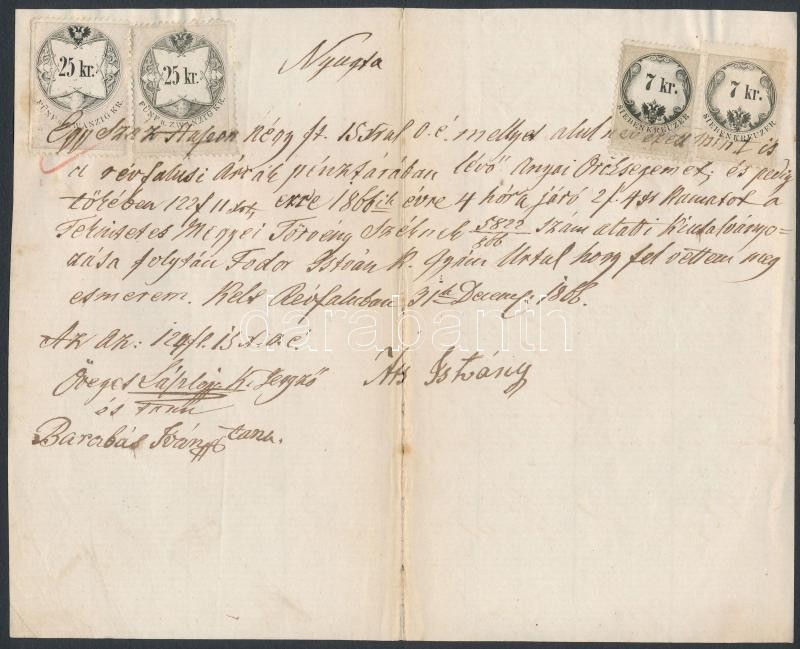 25 kr.
FÜNF U. ZWANZIG KR.
25 kr.
FÜNF U. ZWANZIG KR.
7 kr.
SIEBENKREUZER
7 kr.
SIEBENKREUZER
Nyugta
Egy Száz Huszon négy ft. 15 o. é. mellyet alul nevezett mint is
a révfalusi árvák pénztárában lévő Anyai Örökségemet; és pedig
tőkében 122 f 11 1866ik évre 4 hóra járó 2 f. 4 Kamatot a
Tekintetes Megyei Törvény Széknek 5822/866 szám alatti Kiutalványo-
zása folytán Fodor István K. Gyám Úrtul hogy fel vettem meg
esmerem. Kelt Révfaluban, 31ik Decemb. 1866.
Az az: 124 f. 15 o. é.
Öreges K. Jegyző Ács István
és tanu
Barabás Iván tanu.
darabanth